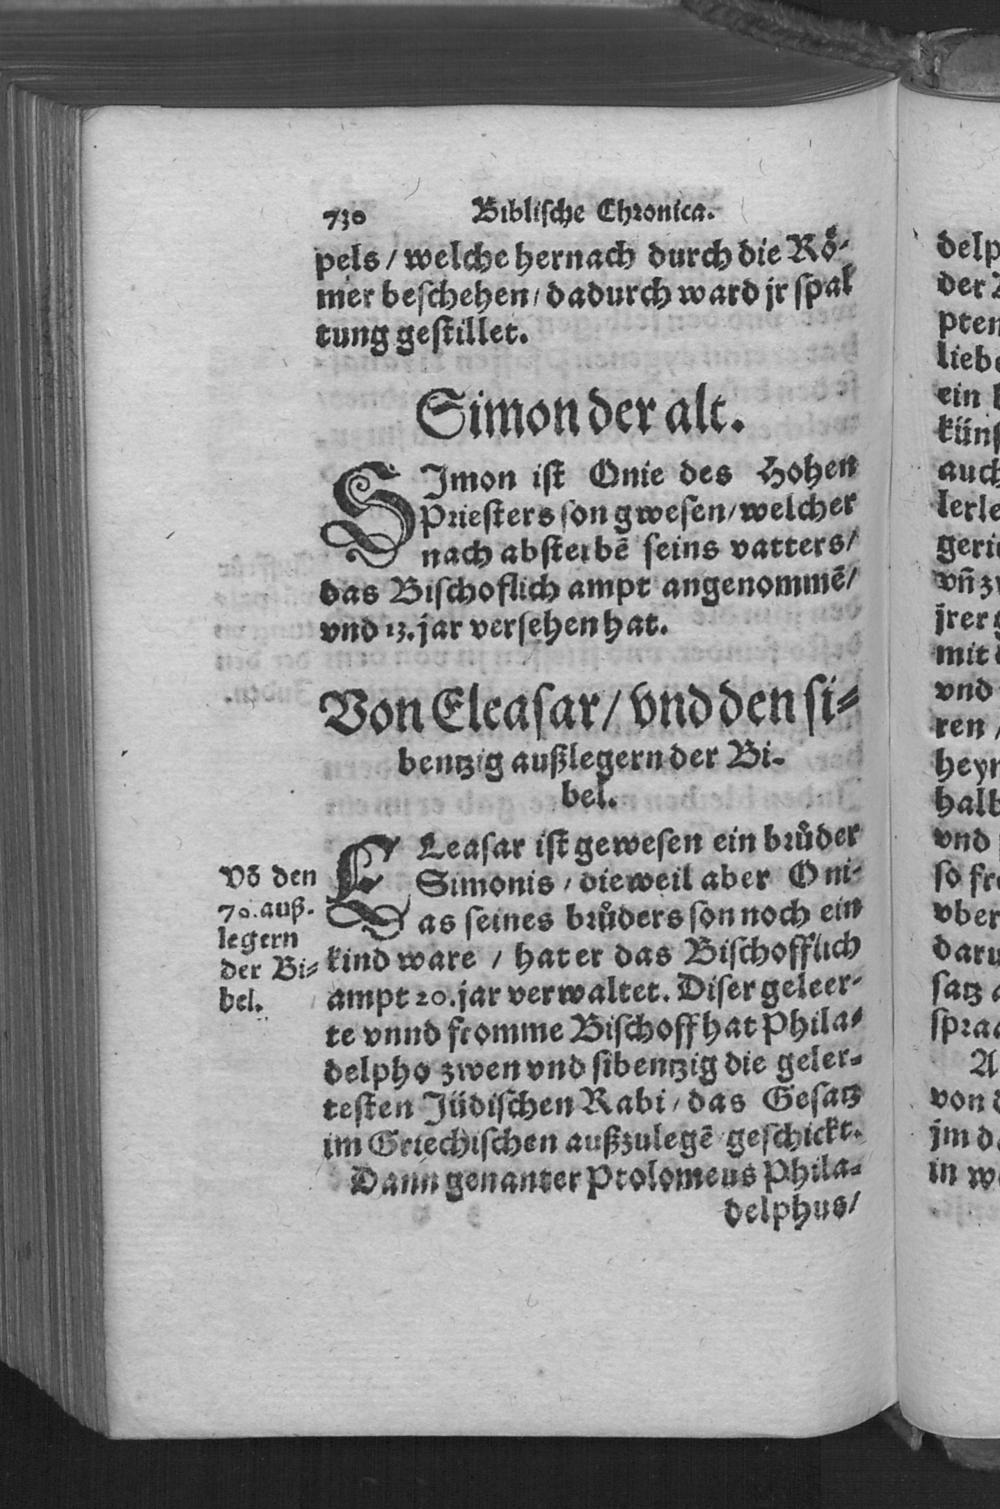 730 Biblische Chronica.
pels / welche hernach durch die Rö-
mer beschehen / dadurch ward jr spal
tung gestillet.
Simon der alt.
SImon ist Onie des Hohen
Priesters son gwesen / welcher
nach absterbẽ seins vatters /
das Bischoflich ampt angenommẽ /
vnd 13. jar versehen hat.
Von Eleasar / vnd den si-
bentzig außlegern der Bi-
bel.
Võ den
70. auß-
legern
der Bi-
bel.
ELeasar ist gewesen ein brůder
Simonis / dieweil aber Oni-
as seines brůders son noch ein
kind ware / hat er das Bischofflich
ampt 20. jar verwaltet. Diser geleer-
te vnnd fromme Bischoff hat Phila-
delpho zwen vnd sibentzig die geler-
testen Jüdischen Rabi / das Gesatz
im Griechischen außzulegẽ geschickt.
Dann genanter Ptolomeus Phila-
delphus /
delp
der
pten
liebe
ein
küns
auch
lerle
geri
vñ z
jrer
mit
vnd
ren /
heyn
halb
vnd
so fre
vber
daru
satz
spraa
A
von
jm da
in we